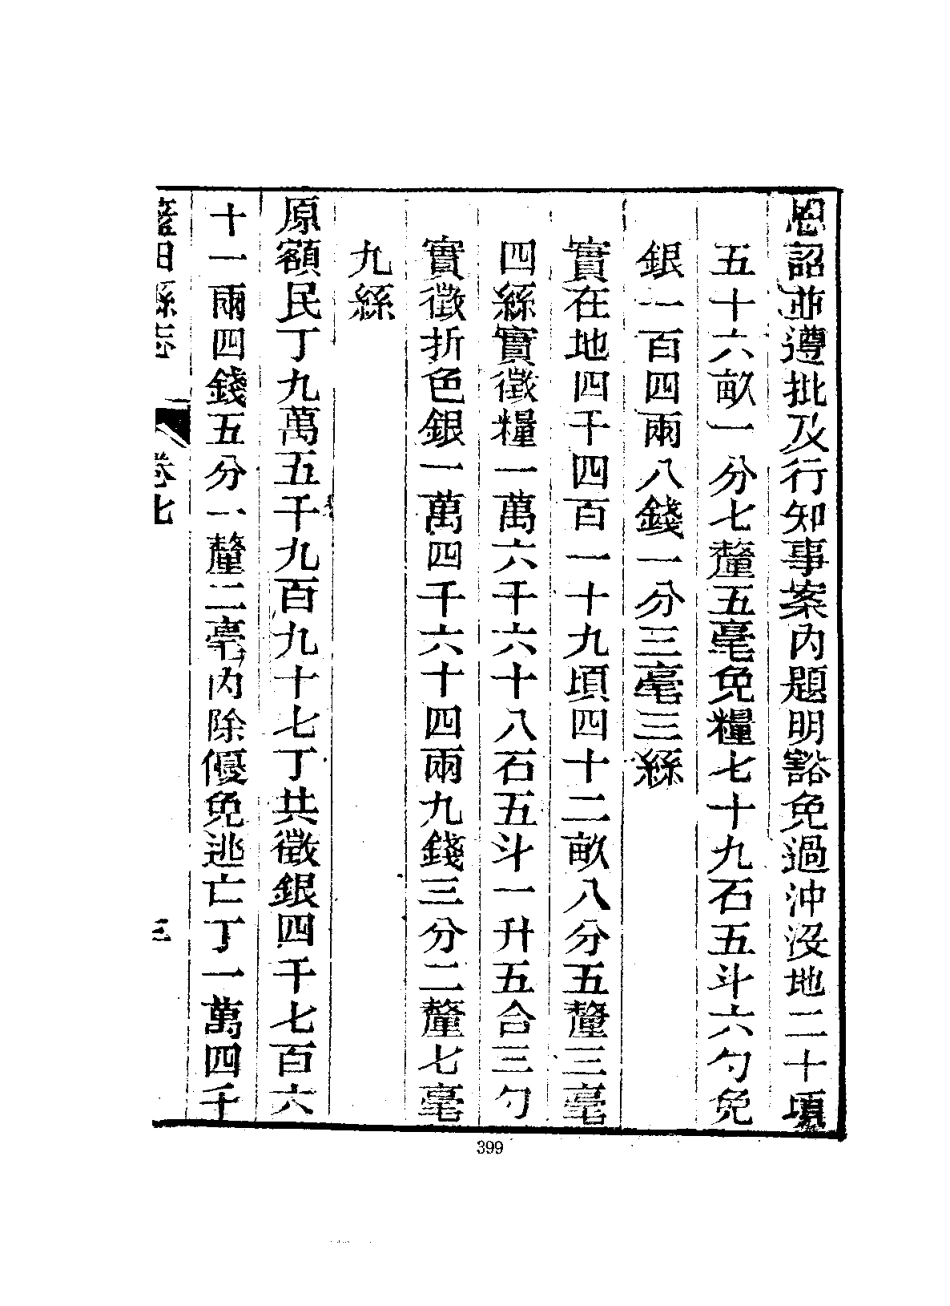 恩詔並遵批及行知事案內題明豁免過沖沒地二十頃
五十六畝一分七釐五毫免糧七十九石五斗六勺免
銀一百四兩八錢一分三毫三絲
實在地四千四百一十九頃四十二畝八分五釐三毫
四絲實徵糧一萬六千六十八石五斗一升五合三勺
實徵折色銀一萬四千六十四兩九錢三分二釐七毫
九絲
原額民丁九萬五千九百九十七丁共徵銀四千七百六
十一兩四錢五分一釐二毫內除優免逃亡丁一萬四千
藍田縣志 卷七 三
399